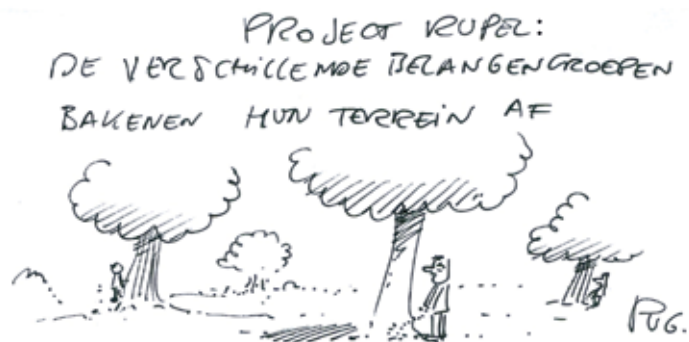 PROJECT RUPEL:
DE VERSCHILLENDE BELANGENGROEPEN
BAKENEN HUN TERREIN AF
PUG.